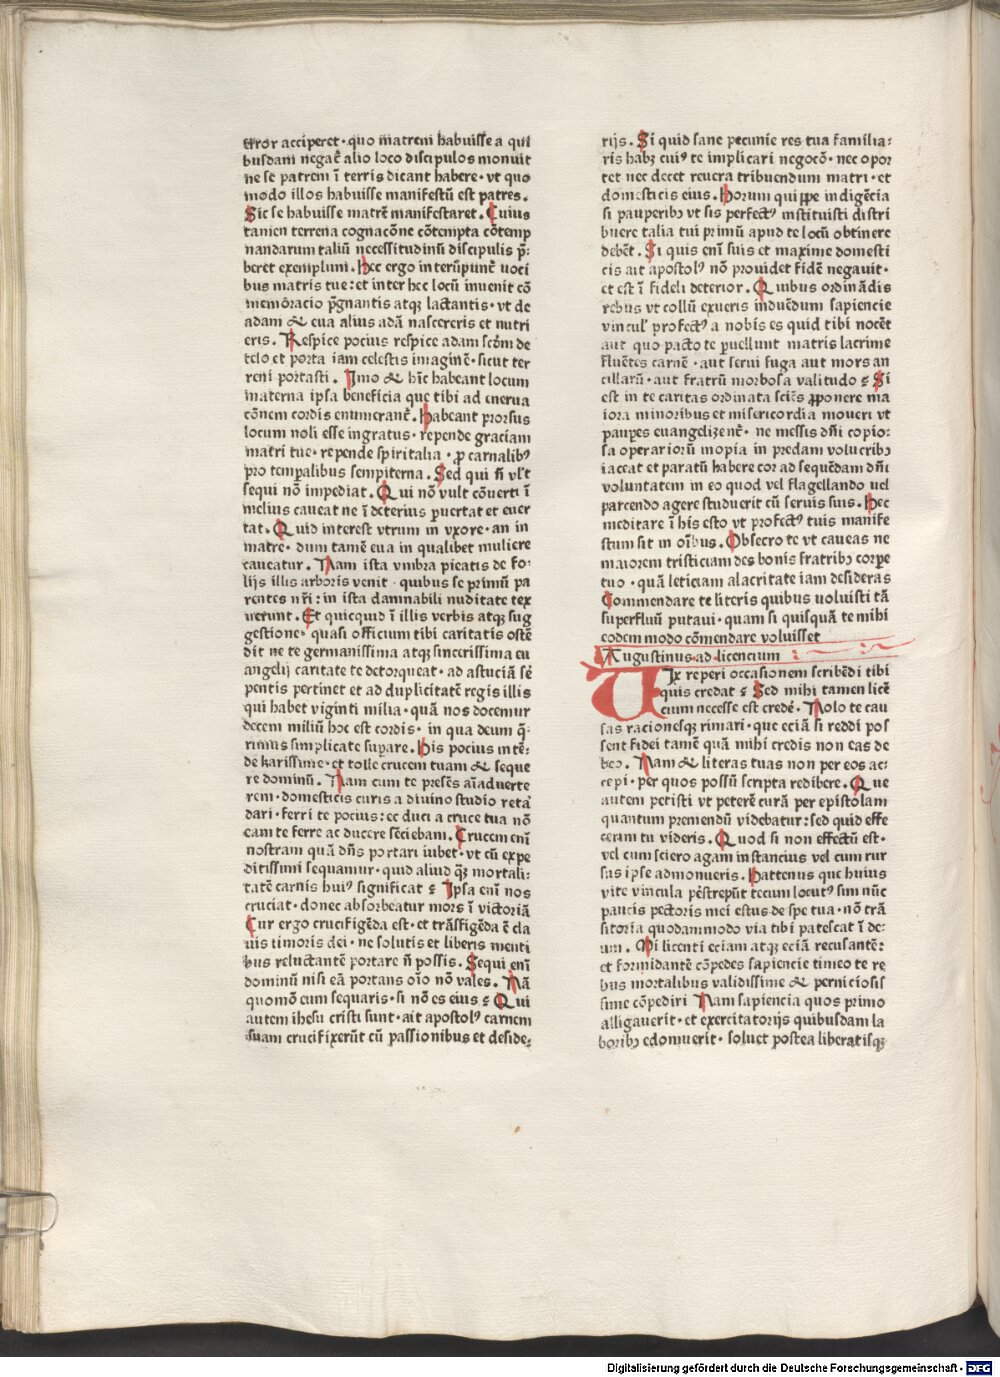 error acciperet · quo matrem habuisse a qui
busdam negat̄ alio loco discipulos monuit
ne se patrem ī terris dicant habere · vt quo
modo illos habuisse manifestū est patres .
Sic se habuisse matrē manifestaret . Cuius
tamen terrena cognacōne cōtempta cōtemp
nandarum taliū necessitudinū discipulis p̄
beret exemplum . Hec ergo interūpunt̄ uoci
bus matris tue : et inter hec locū inuenit cō
memoracio p̄gnantis atqꝫ lactantis · vt de
adam & eua alius adā nascereris et nutri
eris . Respice pocius respice adam scōm de
celo et porta iam celestis imaginē · sicut ter
reni portasti . Imo & hīc habeant locum
materna ipsa beneficia que tibi ad enerua
cōnem cordis enumerant̄ . Habeant prorsus
locum noli esse ingratus · repende graciam
matri tue · repende spiritalia · ꝑ carnalibꝰ
pro temꝑalibus sempiterna . Sed qui n̄ vl't
sequi nō impediat . Qui nō vult cōuerti ī
melius caueat ne ī deterius ꝑuertat et euer
tat . Quid interest vtrum in vxore · an in
matre · dum tamē eua in qualibet muliere
caueatur . Nam ista vmbra pietatis de fo⸗
lijs illis arboris venit · quibus se primū pa
rentes nr̄i : in ista damnabili nuditate tex
uerunt . Et quicquid ī illis verbis atqꝫ sug
gestione · quasi officium tibi caritatis ostē
dit ne te germanissima atqꝫ sincerissima eu
angelij caritate te detorqueat · ad astuciā sē
pentis pertinet et ad duplicitatē regis illis
qui habet viginti milia · quā nos docemur
decem miliū hoc est cordis · in qua deum q̄⸗
rimus simplicate suꝑare . His pocius intē⸗
de karissime · et tolle crucem tuam & seque
re dominū . Nam cum te presēs aīaduerte
rem · domesticis curis a diuino studio reta⸗
dari · ferri te pocius : ꝙ duci a cruce tua nō
eam te ferre ac ducere sēciebam . Crucem enī
nostram quā dn̄s portari iubet · vt cū expe
ditissimi sequamur · quid aliud qꝫ mortali⸗
tatē carnis huiꝰ significat ? Ipsa enī nos
cruciat · donec absorbeatur mors ī victoriā
Cur ergo crucifigēda est · et trāsfigēda ē cla
uis timoris dei · ne solutis et liberis menti
bus reluctantē portare n̄ possis . Sequi enī
dominū nisi eā portans oīo nō vales . Nā
quomō eum sequaris · si nō es eius ? Qui
autem ihesu cristi sunt · ait apostolꝰ carnem
suam crucifixerūt cū passionibus et deside⸗
rijs . Si quid sane pecunie res tua familia⸗
ris habꝫ cuiꝰ te implicari negocō · nec opor
tet nec decet reuera tribuendum matri · et
domesticis eius . Horum quippe indigēcia
si pauperibꝰ vt sis perfectꝰ instituisti distri
buere talia tui primū apud te locū obtinere
debēt . Si quis enī suis et maxime domesti
cis ait apostolꝰ nō prouidet fidē negauit ·
et est ī fideli deterior . Quibus ordināndis
rebus vt collū exueris induēdum sapiencie
vincul' profectꝰ a nobis es quid tibi nocēt
aut quo pacto te ꝑuellunt matris lacrime
fluētes carnē · aut serui fuga aut mors an
cillarū · aut fratrū morbosa valitudo ? Si
est in te caritas ordinata sciēs ꝓponere ma
iora minoribus et misericordia moueri vt
pauꝑes euangelizent̄ · ne messis dn̄i copio⸗
sa operariorū inopia in predam volucribꝰ
iaceat et paratū habere cor ad sequēdam dn̄i
voluntatem in eo quod vel flagellando uel
parcendo agere studuerit cū seruis suis . Hec
meditare ī his esto vt profectꝰ tuis manife
stum sit in oībus . Obsecro te vt caueas ne
maiorem tristiciam des bonis fratribꝰ torpe
tuo · quā leticiam alacritate iam desideras
Commendare te literis quibus voluisti tā
superfluū putaui · quam si quisquā te mihi
eodem modo cōmendare voluisset
Augustinus ad licencium
Uix reperi occasionem scribēdi tibi
quis credat ? Sed mihi tamen licē
cium necesse est cređe . Nolo te cau
sas racionesqꝫ rimari · que eciā si reddi pos
sent fidei tamē quā mihi credis non eas de
beo . Nam & literas tuas non per eos ac⸗
cepi · per quos possū scripta redibere . Que
autem petisti vt peterē curā per epistolam
quantum premendū videbatur : sed quid effe
cerim tu videris . Quod si non effectū est ·
vel cum sciero agam instancius vel cum rur
sus ipse admoueris . Hattenus que huius
vite vincula pēstrepūt tecum locutꝰ sim nūc
paucis pectoris mei estus de spe tua · nō trā
sitoria quodammodo via tibi patescat ī de⸗
um . Mi licenti eciam atqꝫ eciā recusantē :
et formidantē cōpedes sapiencie timeo te re
bus mortalibus validissime & perniciosis
sime cōpediri Nam sapiencia quos primo
alligauerit · et exercitatorijs quibusdam la
boribꝰ edomuerit · soluet postea liberatisqꝫ
Digitalisierung gefördert durch die Deutsche Forschungsgemeinschaft - DFG